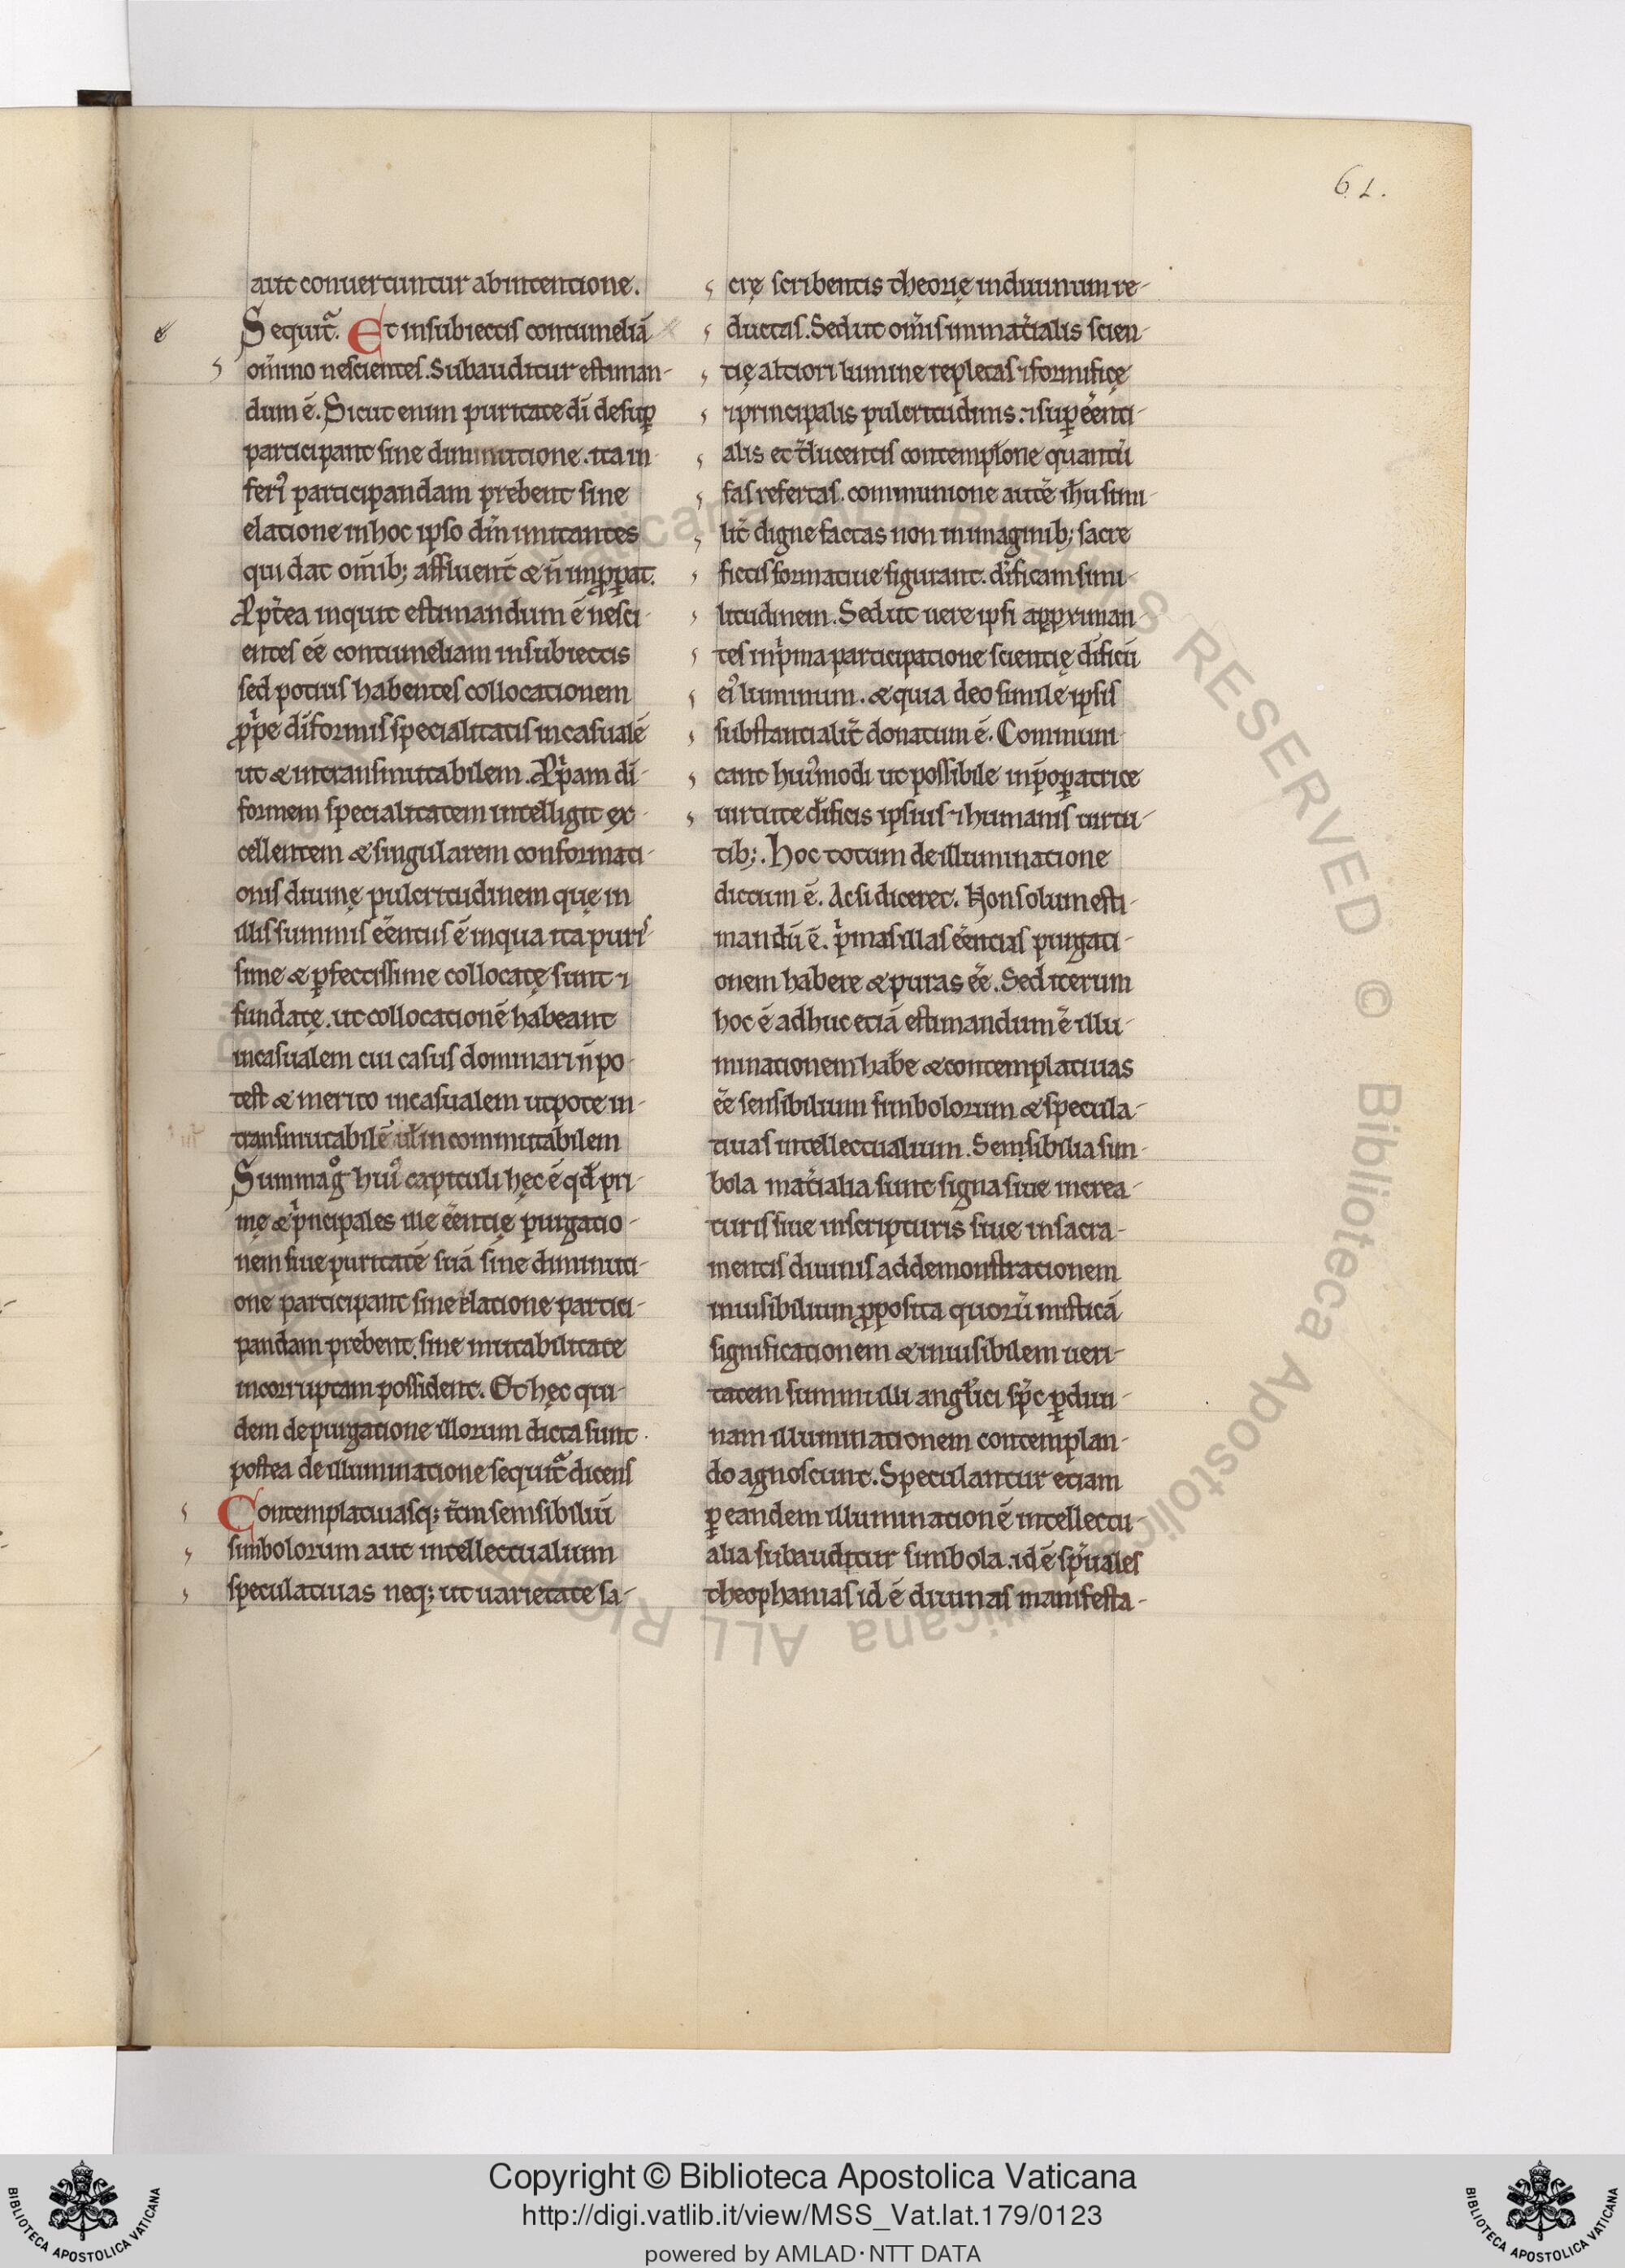 61.
aut conuertuntur ab intentione.
Sequit᷑. Et in subiectis contumeliā
om̄ino nescientes. Subauditur estiman-
dum ē. Sicut enim puritate di᷑ desup̱
participant sine diminutione. ita in-
feri᷑ participandam prebent sine
elatione in hoc ipso dm̄ imitantes
qui dat om̄ib; affluent̄ & n̄ imꝓꝑat.
Apt᷑ea inquit estimandum ē nesci-
entes eē contumeliam in subiectis
sed potius habentes collocationem
ꝓpͥe di᷑formis specialitatis in casualē
ut & intransmutabilem. Apͥam di᷑-
formem specialitatem intelligit ex-
cellentem & singularem conformati-
onis diuinę pulcritudinem quę in
illis summis eēntiis ē in qua ita puris-
sime & ꝑfectissime collocatę sunt ⁊
fundatę. ut collocationē habeant
incasualem cui casus dominari n̄ po-
test & merito incasualem utpote in-
transmutabilē ul̄ incommutabilem
Summa gͦ hui᷑ capituli hęc ē qd̄ pri-
mę & pͥncipales ille eēntię purgatio-
nem siue puritatē suā sine diminuti-
one participant sine elatione partici-
pandam prebent. sine mutabilitate
incorruptam possident. Et hęc qui-
dem de purgatione illorum dicta sunt.
postea de illuminatione sequit᷑ dicens
Contemplatiuasq; t̄m sensibiliū
simbolorum aut intellectualium
speculatiuas neq; ut uarietate sa-
crę scribentis theorię in diuinum re-
ductas. Sed ut om̄is inmat᷑ialis scien-
tię altiori lumine repletas ⁊ formificę
⁊ principalis pulcritudinis. ⁊ suꝑeēnti-
alis et t᷑lucentis contempl̄one quantū
fas refertas. communione autē ih̄u simi-
lit᷑ digne factas non in imaginib; sacre
fictis formatiue figurant. di᷑ficam simi-
litudinem. Sed ut uere ipsi apꝓximan-
tes in pͥma participatione scientię di᷑ficū
ei᷑ luminum. & quia deo simile ipsis
substantialit᷑ donatum ē. Communi-
cant hui᷑modi ut possibile in p̄oꝑatrice
uirtute di᷑ficis ipsius ⁊ humanis uirtu-
tib;. Hoc totum de illuminatione
dictum ē. Ac si diceret. Non solum esti-
mandū ē. pͥmas illas eēntias purgati-
onem habere & puras eē. Sed iterum
hoc ē adhuc etiā estimandum ē illu-
minationem hab̄e & contemplatiuas
eē sensibilium simbolorum & specula-
tiuas intellectualium. Sensibilia sim-
bola mat᷑ialia sunt signa siue in crea-
turis siue in scripturis siue in sacra-
mentis diuinis ad demonstrationem
inuisibilium ꝓposita quorū misticā
significationem & inuisibilem ueri-
tatem summi illi angl̄ici sp̄c ꝑ diui-
nam illuminationem contemplan-
do agnoscunt. Speculantur etiam
ꝑ eandem illuminationē intellectu-
alia subauditur simbola. id ē sp̄uales
theophanias id ē diuinas manifesta-
Copyright © Biblioteca Apostolica Vaticana
http://digi.vatlib.it/view/MSS_Vat.lat.179/0123
powered by AMLAD·NTT DATA
BIBLIOTECA APOSTOLICA VATICANA
BIBLIOTECA APOSTOLICA VATICANA